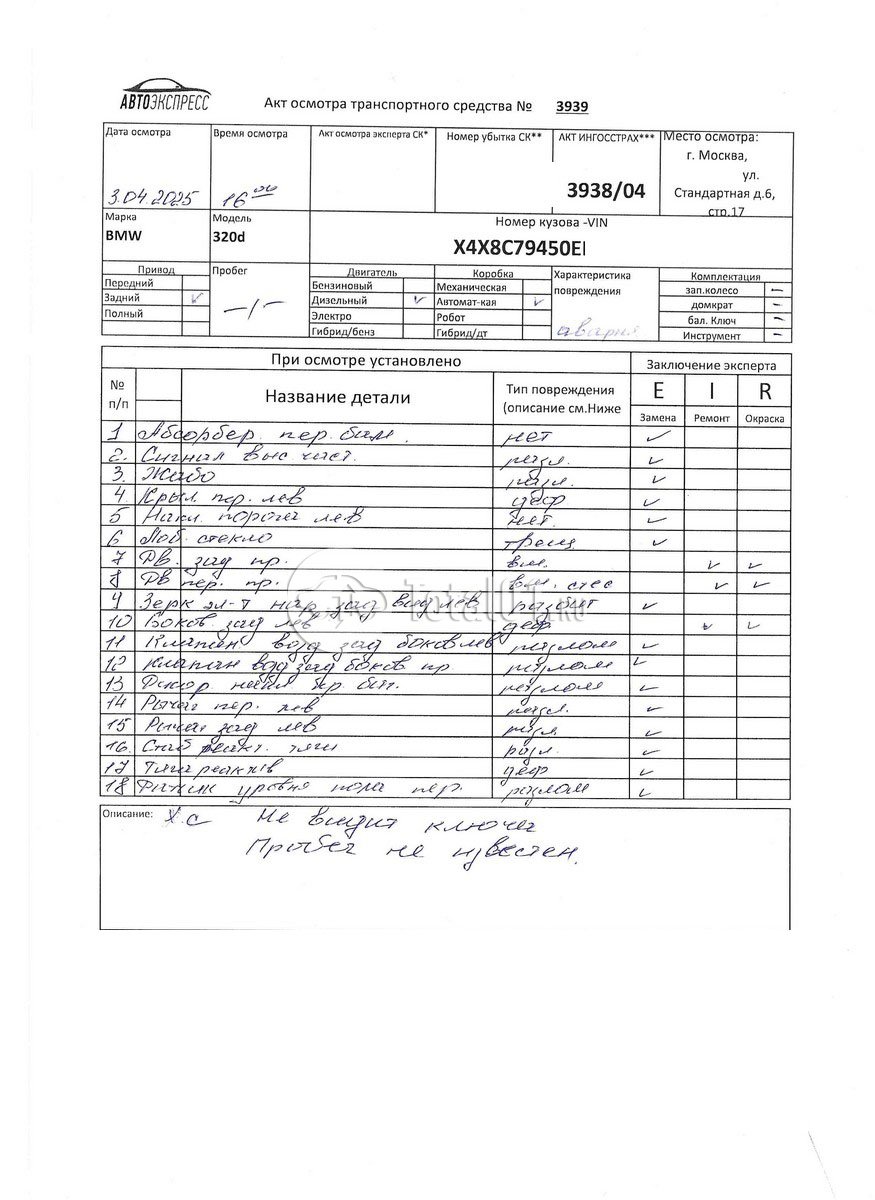 АВТОЭКСПРЕСС
Акт осмотра транспортного средства № 3939
Дата осмотра
3.04.2025
Время осмотра
16 00
Акт осмотра эксперта СК*
Номер убытка СК**
АКТ ИНГОССТРАХ***
3938/04
Место осмотра:
г. Москва,
ул.
Стандартная д.6,
стр.17
Марка
BMW
Модель
320d
Номер кузова -VIN
X4X8C79450EI
Привод
Передний
Задний ✓
Полный
Пробег
—/—
Двигатель
Бензиновый
Дизельный ✓
Электро
Гибрид/бенз
Коробка
Механическая
Автомат-кая ✓
Робот
Гибрид/дт
Характеристика
повреждения
авария
Комплектация
зап.колесо —
домкрат –
бал. Ключ –
Инструмент –
При осмотре установлено
Заключение эксперта
№ п/п
Название детали
Тип повреждения
(описание см.Ниже
E I R
Замена Ремонт Окраска
1 Абсорбер пер. бам. нет ✓
2. Сигнал выс част. разл. ✓
3. Жабо разл. ✓
4. Крыл пер. лев деф ✓
5 Накл. порога лев нет. ✓
6 Лоб. стекло трещ ✓
7 Дв. зад пр. вм. ✓ ✓
8 Дв пер. пр. вм. ✓ ✓
9 Зерк эл-т нар зад вид лев разбит ✓
10 Боков зад лев деф ✓ ✓
11 Клапан возд зад боков лев разлом ✓
12 клапан возд зад боков пр. разлом ✓
13 пр. разлом ✓
14 Рычаг пер. лев разл. ✓
15 Рычаг зад лев разл. ✓
16. Стаб тяги разл. ✓
17 Тяга деф ✓
18 Датчик уровня пола пер. разлом ✓
Описание: Х.с Не видит ключа
Пробег не известен.
Total01.ru